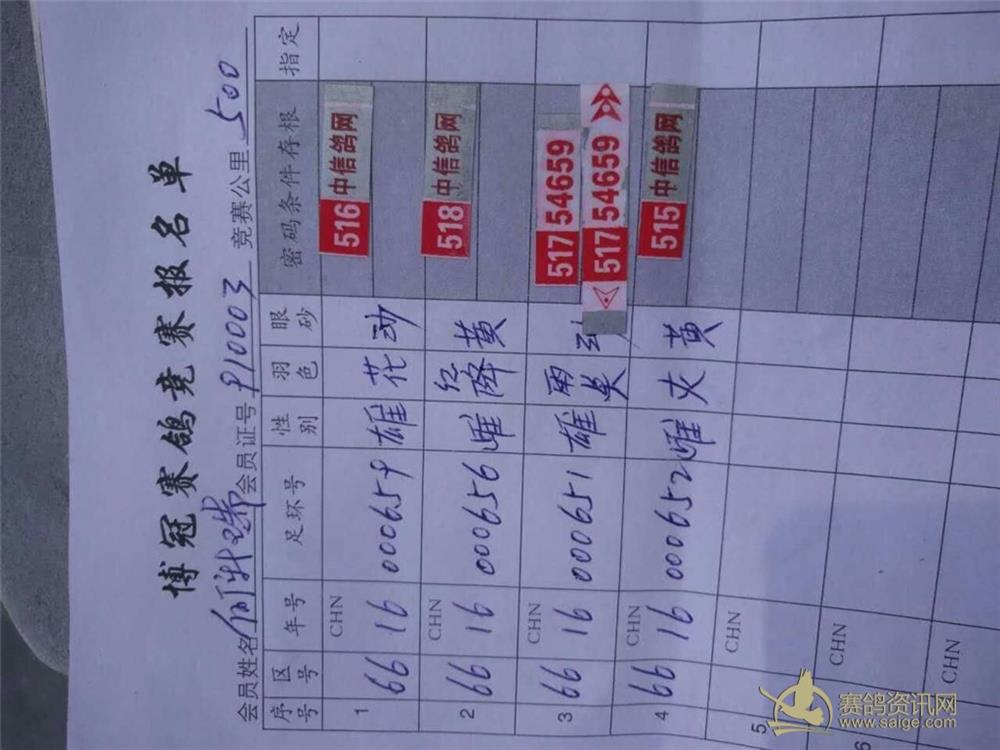 博冠赛鸽竞赛报名单
会员姓名 会员证号 P10003 竞赛公里 500
序号 区号 年号 足环号 性别 羽色 眼砂 密码条件存根 指定
1 66 CHN 16 000659 雄 花 砂 516 中信鸽网
2 66 CHN 16 000656 雌 红降 黄 518 中信鸽网
3 66 CHN 16 000651 雄 雨 517 54659
517 54659
4 66 CHN 16 000652 雌 灰 黄 515 中信鸽网
5 CHN
6 CHN
CHN
赛鸽资讯网
www.saige.com